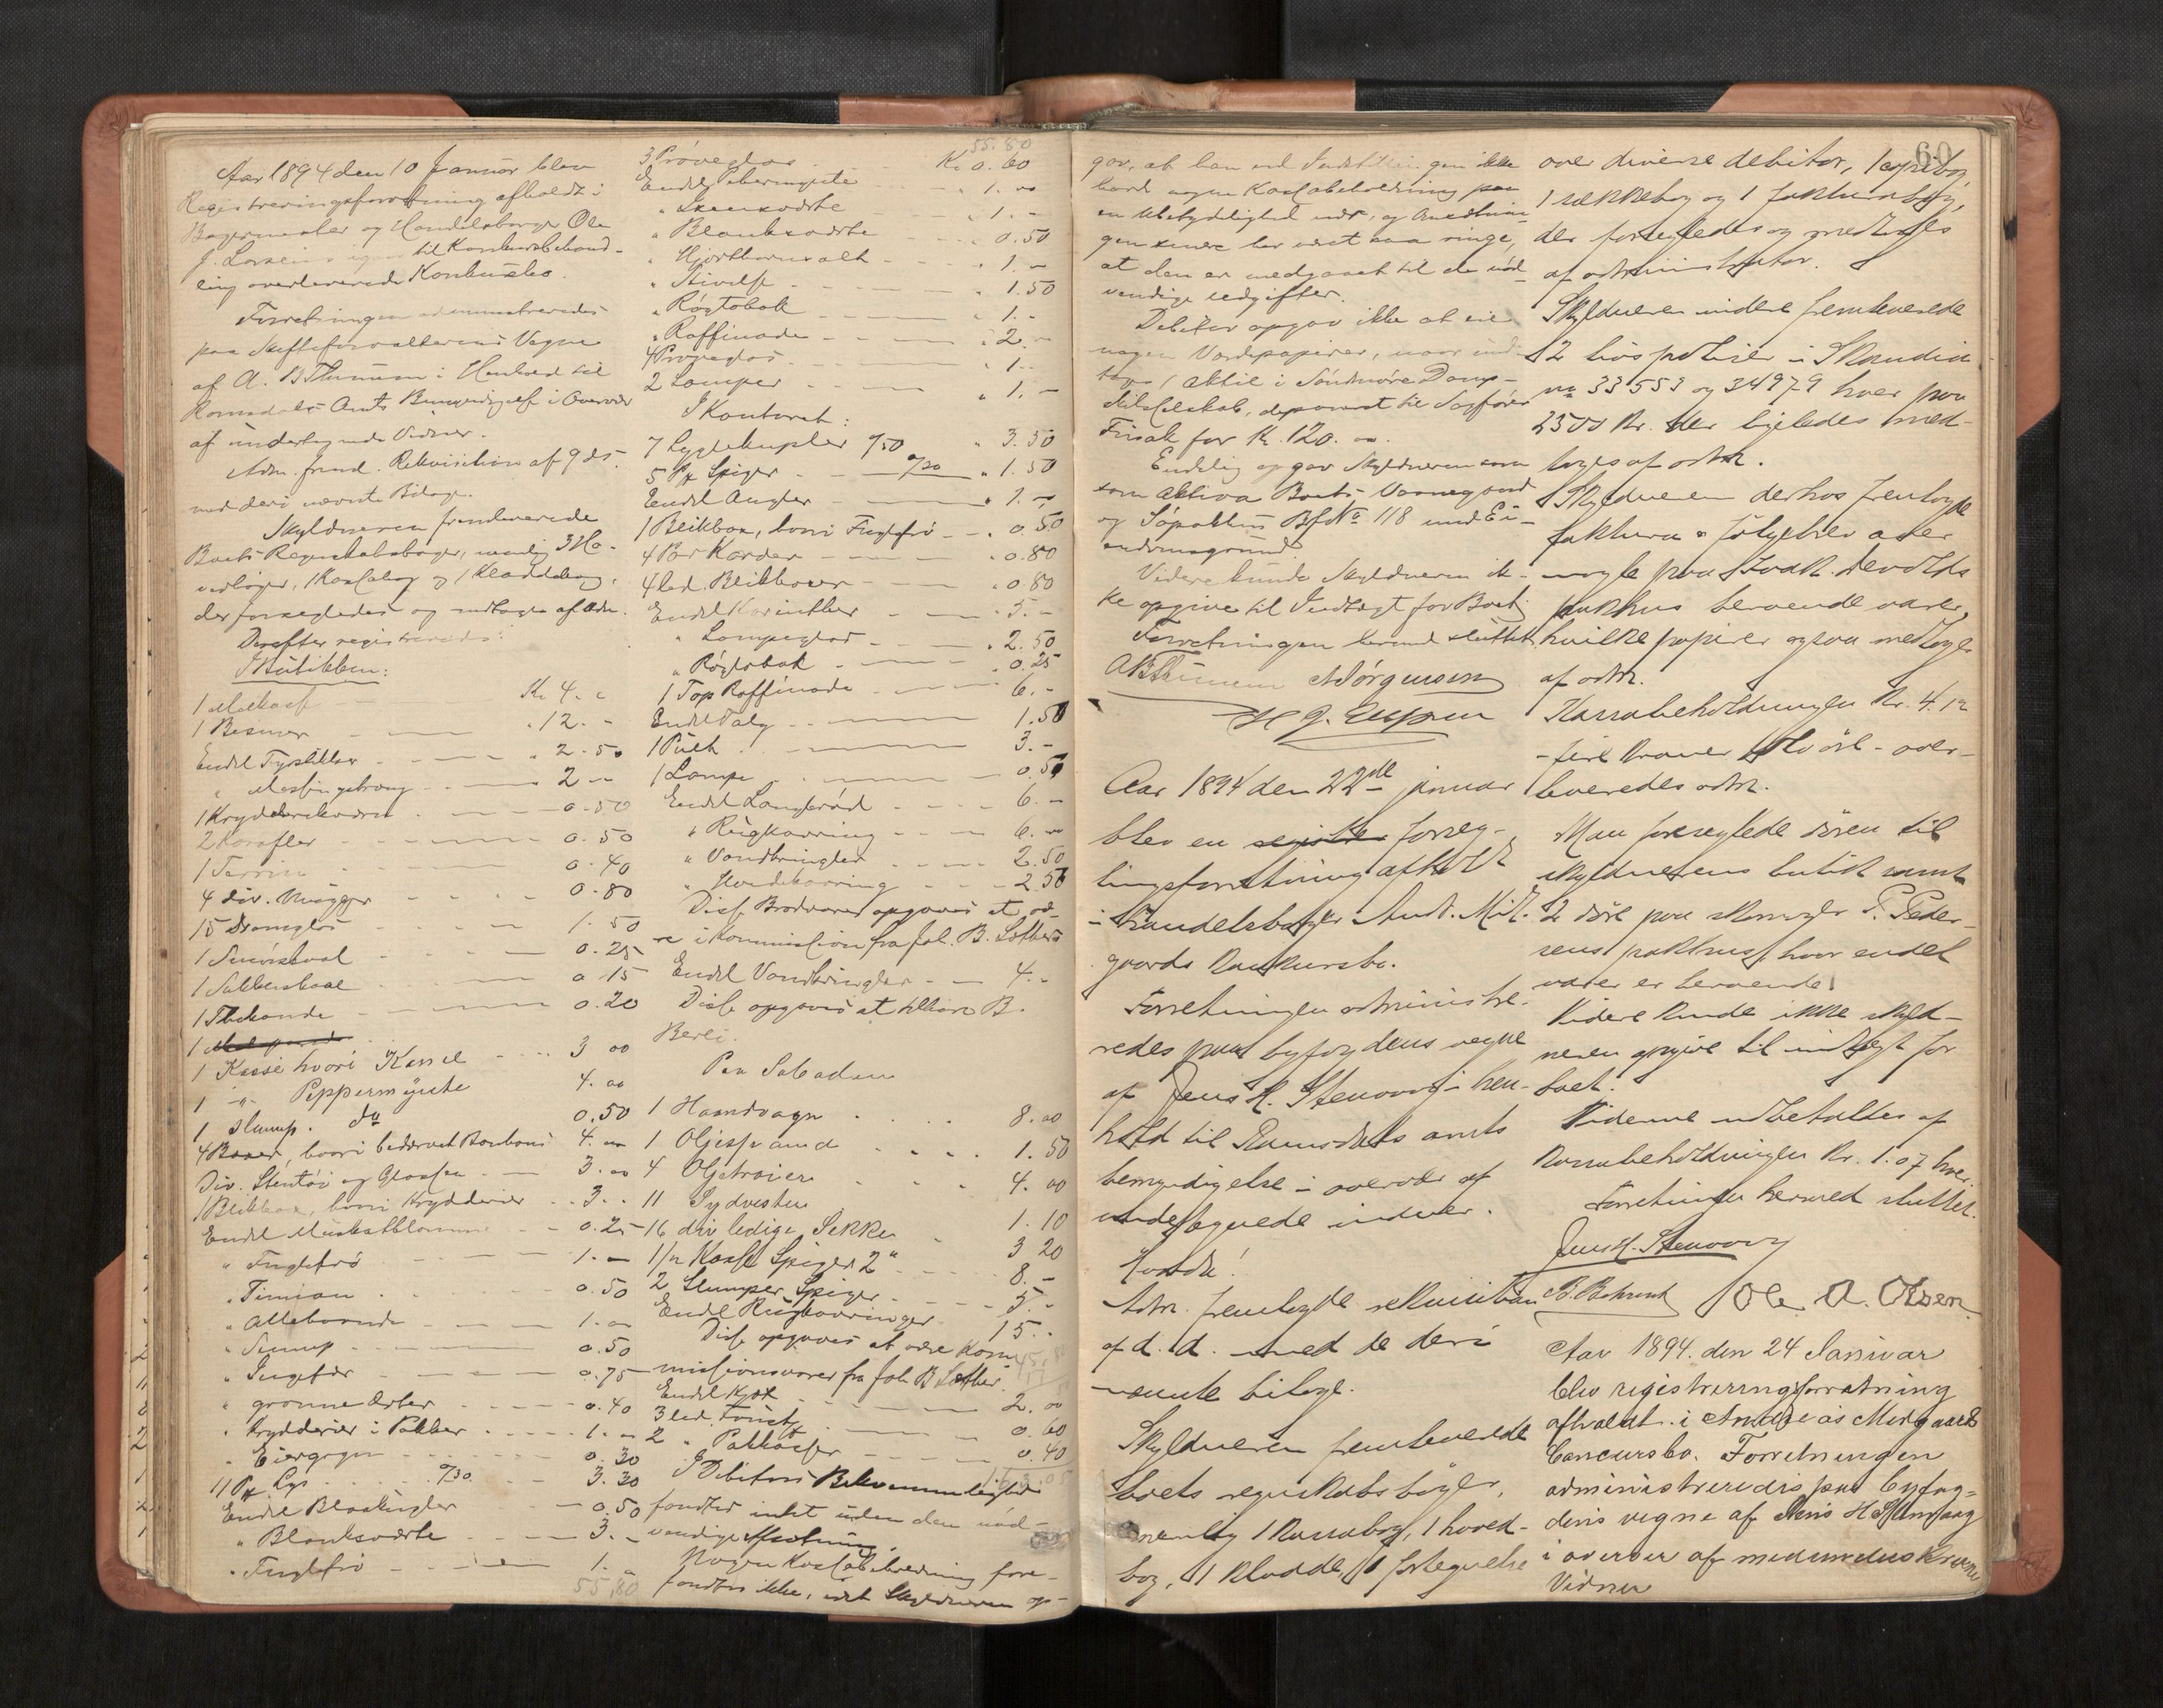 Aar 1894 den 10 Januar blev
Registreringsforretning afholdt i
Bagermester og Handelsborger Ole
J. Larsens igaar til Konkursbehand-
ling overleverede Konkursbo.
Forretningen administreredes
paa Skifteforvalterens Vegne
af A. B. Thunem i Henhold til
Romsdals Amts Bemyndigelse i Overvær
af undertegnede Vidner.
Adm. freml. Rekvisition af 9 ds.
med deri nævnte Bilage.
Skyldneren fremleverede
Boets Regnskabsbøger, nemlig 3 Ho-
vedbøger, 1 Kassabog og 1 Kladdebog,
der forsegledes og modtoges af Adm.
Derefter registreredes:
I Butikken:
1 Kr. 4. -
1 Bismer " 12. -
Endel " 2.50
" Messingstrang 2 -
1 0.50
2 Karafler 0.50
1 Terrin 0.40
4 div. Mugger 0.80
15 Dramglas 1.50
1 0.25
1 Sukkerskaal 0.15
1 Thekande 0.20
1
1 Kasse hvori Kanel 3 00
1 -"- Peppermynte 4.00
1 Slump. do 0.50
4 Baxer, hvori bedærvet Bonbons 4.00
Div. Stentøi og Glassen 3.00
1 Blikbox, hvori Krydderier 3. -
Endel Muskatblomme 0.25
" Fuglefrø 1. -
" Timian 0.50
" Allehaande 1.00
" Sennep 0.50
" Ingefær 0.75
" grønne Erter 0.40
" Krydderier i Pakker 1. -
" Eiergryn 0.30
11 P℔ Lys 0/30 3.30
Endel Blaakugler 0.50
" Blanksværte 3. -
" Fuglefrø 1. -
55,80
55.80
3 Prøveglas Kr. 0.60
Endel Pebermynte " 1.00
" Skosværte " 1. -
" Blanksværte 0.50
" Hjorthornsalt " 1. -
" Stivelse " 1.50
" Røgtobak " 1. -
" Raffinade " 2. -
4 Prøveglas 1. -
2 Lamper " 1. -
I Kontoret:
7 Lygtekupler 0/50 " 3.50
5 P℔ Spiger 0/30 " 1.50
Endel Angler " 1. -
1 Blikbox, hvori Fuglefrø 0.50
4 Par Karder " 0.80
4 led. Blikboxer " 0.80
Endel Korinther " 3. -
" Lampeglas " 2.50
" Røgtobak " 0.25
1 Top Raffinade 6. -
Endel Talg 1.50
1 Pult 3. -
1 Lampe 0.50
Endel Langbrød 6. -
" Rugkavring 6. -
" Vandkringler 2.50
" Hvedekavring 2.50
Disse Brødvarer opgaves at væ-
re i Kommission fra Joh. B. Sæther
Endel Vandkringler 4. -
Disse opgaves at tilhøre B.
Berli.
Paa Søboden
1 Haandvogn 8.00
1 Oljespand 1.50
4 Oljetrøier 4.00
11 Sydvester 1.10
16 div ledige Sekke 3 20
1/2 Kasse Spiger 2" 8. -
2 Slumper Spiger 5. -
Endel Rugkavringer 15. -
Disse opgaves at være Kom-
missionsvarer fra Joh. B. Sæther
Endel Kjøl 2.00
3 led. Fust. 0.60
2 " Pakkasser 0.40
I Debitors Bekvemmelighed
fandtes intet uden den nød-
vendige Møblering.
Nogen Kassabeholdning fore-
fandtes ikke, idet Skyldneren op-
gav, at han ved Indstillingen ikke
havde nogen Kassabeholdning paa
en Ubetydelighed nær, og Omsætnin-
gen senere har været saa ringe,
at den er medgaaet til de nød-
vendige Udgifter.
Debitor opgav ikke at eie
nogen Værdipapirer, naar und-
tages 1 Aktie i Søndmøre Damp-
skibsselskab, deponeret til Sagfører
for Kr. 120.00.
Endelig opgav Skyldneren som
som Aktiva Boets Vaanegaard
og Søpakhus Bf No 118 med Ei-
endomsgrund.
Videre kunde Skyldneren ik-
ke opgive til Indtægt for Boet.
Forretningen hermed sluttet.
A B Thunem A Jørgensen
H J. Espsen
Aar 1894 den 22de januar
blev en forseg-
lingsforretning afholdt
i Handelsborger And. Mid-
gaards Konkursbo.
Forretningen administre-
redes paa byfogdens vegne
af Jens H. Stenvaag i hen-
hold til Romsdals amts
bemyndigelse i overvær af
undertegnede vidner.
Adm. fremlagde rekvisition
af d. d. med de deri
nævnte bilage.
Skyldneren fremleverede
boets regnskabsbøger,
nemlig 1 Kassabog, 1 hoved-
bog, 1 Kladde, 1 fortegnelse
60
over diverse debitor, 1 copiebog,
1 rækkebog og 1 fakturabog,
der forsegledes og modtoges
af administrator.
Skyldneren videre fremleverede
2 livspoliser i Skandia
no 33553 og 34979 hver paa
2500 Kr. der ligeledes mod-
toges af adm.
Skyldneren derhos fremlagde
faktura & følgebrev over
nogle paa Isak Devolds
pakhus beroende varer,
hvilke papirer ogsaa modtoges
af adm.
Kassabeholdningen Kr. 4.12
- fire Kroner tolv øre - over-
leveredes adm.
Man forseglede døren til
skyldnerens butik samt
2 døre paa skomager P. Peder-
sens pakhus, hvor endel
varer er beroende.
Videre kunde ikke skyld-
neren opgive til indtægt for
boet.
Vidnerne udbetaltes af
Kassabeholdningen Kr. 1.07 hver.
Forretningen hermed sluttet.
Jens H. Stenvaag
B. Behrent Ole A. Olsen
Aar 1894. den 24 Januar
blev registreringsforretning
afholdt i Andreas Midgaards
Concursbo. Forretningen
administreredes paa byfog-
dens vegne af Jens H Stenvaag
i overvær af medundeskrevne
Vidner